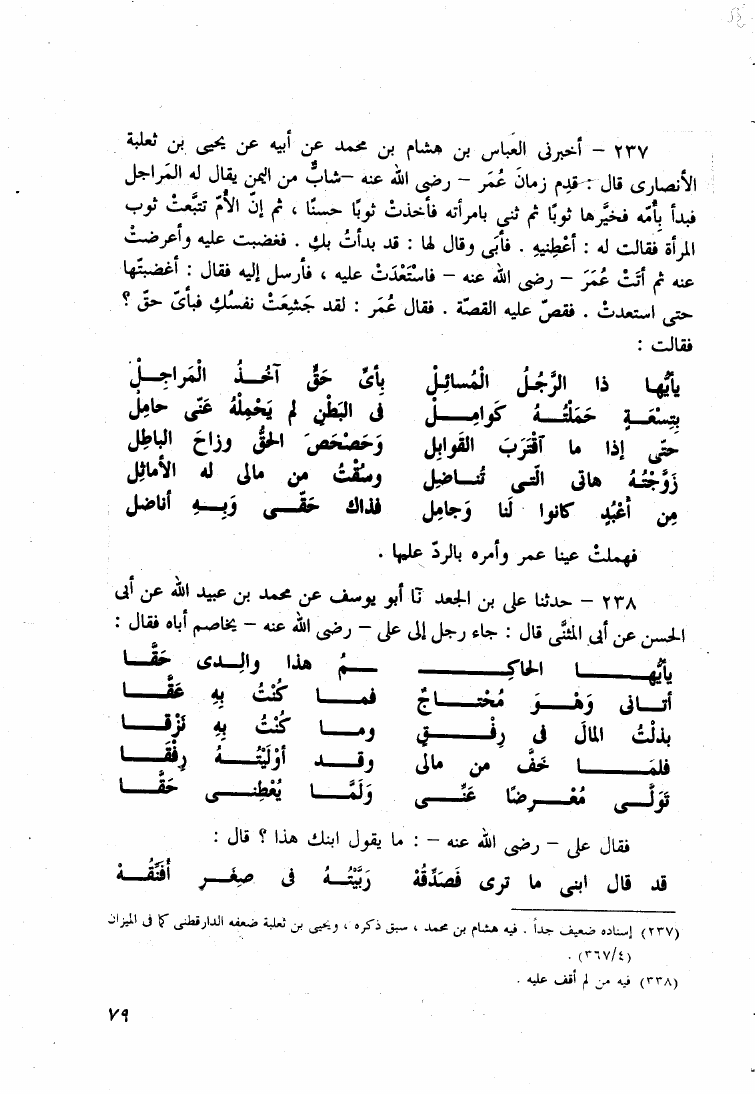 ٢٣٧ – أخبرنى العباس بن هشام بن محمد عن أبيه عن يحيى بن ثعلبة
الأنصارى قال : قدم زمانَ عُمَر – رضى الله عنه – شابٌّ من اليمن يقال له المَراجل
فبدأ بأُمّه فخيَّرها ثوبًا ثم ثنى بامرأته فأخذتْ ثوبًا حسنًا ، ثم إنّ الأُمّ تتبَّعتْ ثوب
المرأة فقالت له : أعْطِنيهِ . فأبَى وقال لها : قد بدأتُ بكِ . فغضبت عليه وأعرضتْ
عنه ثم أتَتْ عُمَرَ – رضى الله عنه – فاسْتَعْدَتْ عليه ، فأرسل إليه فقال : أغضبتَها
حتى استعدتْ . فقصّ عليه القصّة . فقال عُمَر : لقد جَشِعَتْ نفسُكِ فبأىّ حقّ ؟
فقالت :
يأيُّها ذا الرَّجُلُ الْمُسائِلْ بِأىِّ حَقٍّ آخُذُ الْمَراجِلْ
بِتِسْعَةٍ حَمَلْتُهُ كَوامِلْ فى البَطْنِ لم يَحْمِلْهُ عَنّى حامِلْ
حتّى إذا ما آقْتَرَبَ القَوابِلْ وَحَصْحَصَ الحَقُّ وزاحَ الباطِلْ
زَوَّجْتُهُ هاتى الّتى تُناضِلْ وسُقْتُ من مالى له الأماثِلْ
مِن أعْبُدٍ كانوا لَنا وَجامِلْ فذاك حَقّى وَبِهِ أناضل
فهملتْ عينا عمر وأمره بالردّ عليها .
٢٣٨ – حدثنا على بن الجعد نَا أبو يوسف عن محمد بن عبيد الله عن أبى
الحسن عن أبى المثنّى قال : جاء رجل إلى على – رضى الله عنه – يخاصم أباه فقال :
يأيُّها الحاكِمُ هذا والِدى حَقَّا
أتانى وَهْوَ مُحْتاجٌ فما كُنْتُ بِهِ عَقَّا
بذلْتُ المالَ فى رِفْقٍ وما كُنْتُ بِهِ نَزْقا
فلمّا خَفَّ من مالى وقد أوْلَيْتُهُ رِفْقا
تَوَلّى مُعْرِضًا عَنّى وَلَمَّا يُعْطِنى حَقَّا
فقال على – رضى الله عنه – : ما يقول ابنك هذا ؟ قال :
قد قال ابنى ما ترى فَصَدِّقُهْ رَبَّيْتُهُ فى صِغَرٍ أُفَنِّقُهْ
(٢٣٧) إسناده ضعيف جداً . فيه هشام بن محمد ، سبق ذكره ، ويحيى بن ثعلبة ضعفه الدارقطنى كما فى الميزان
(٣٦٧/٤) .
(٢٣٨) فيه من لم أقف عليه .
٧٩